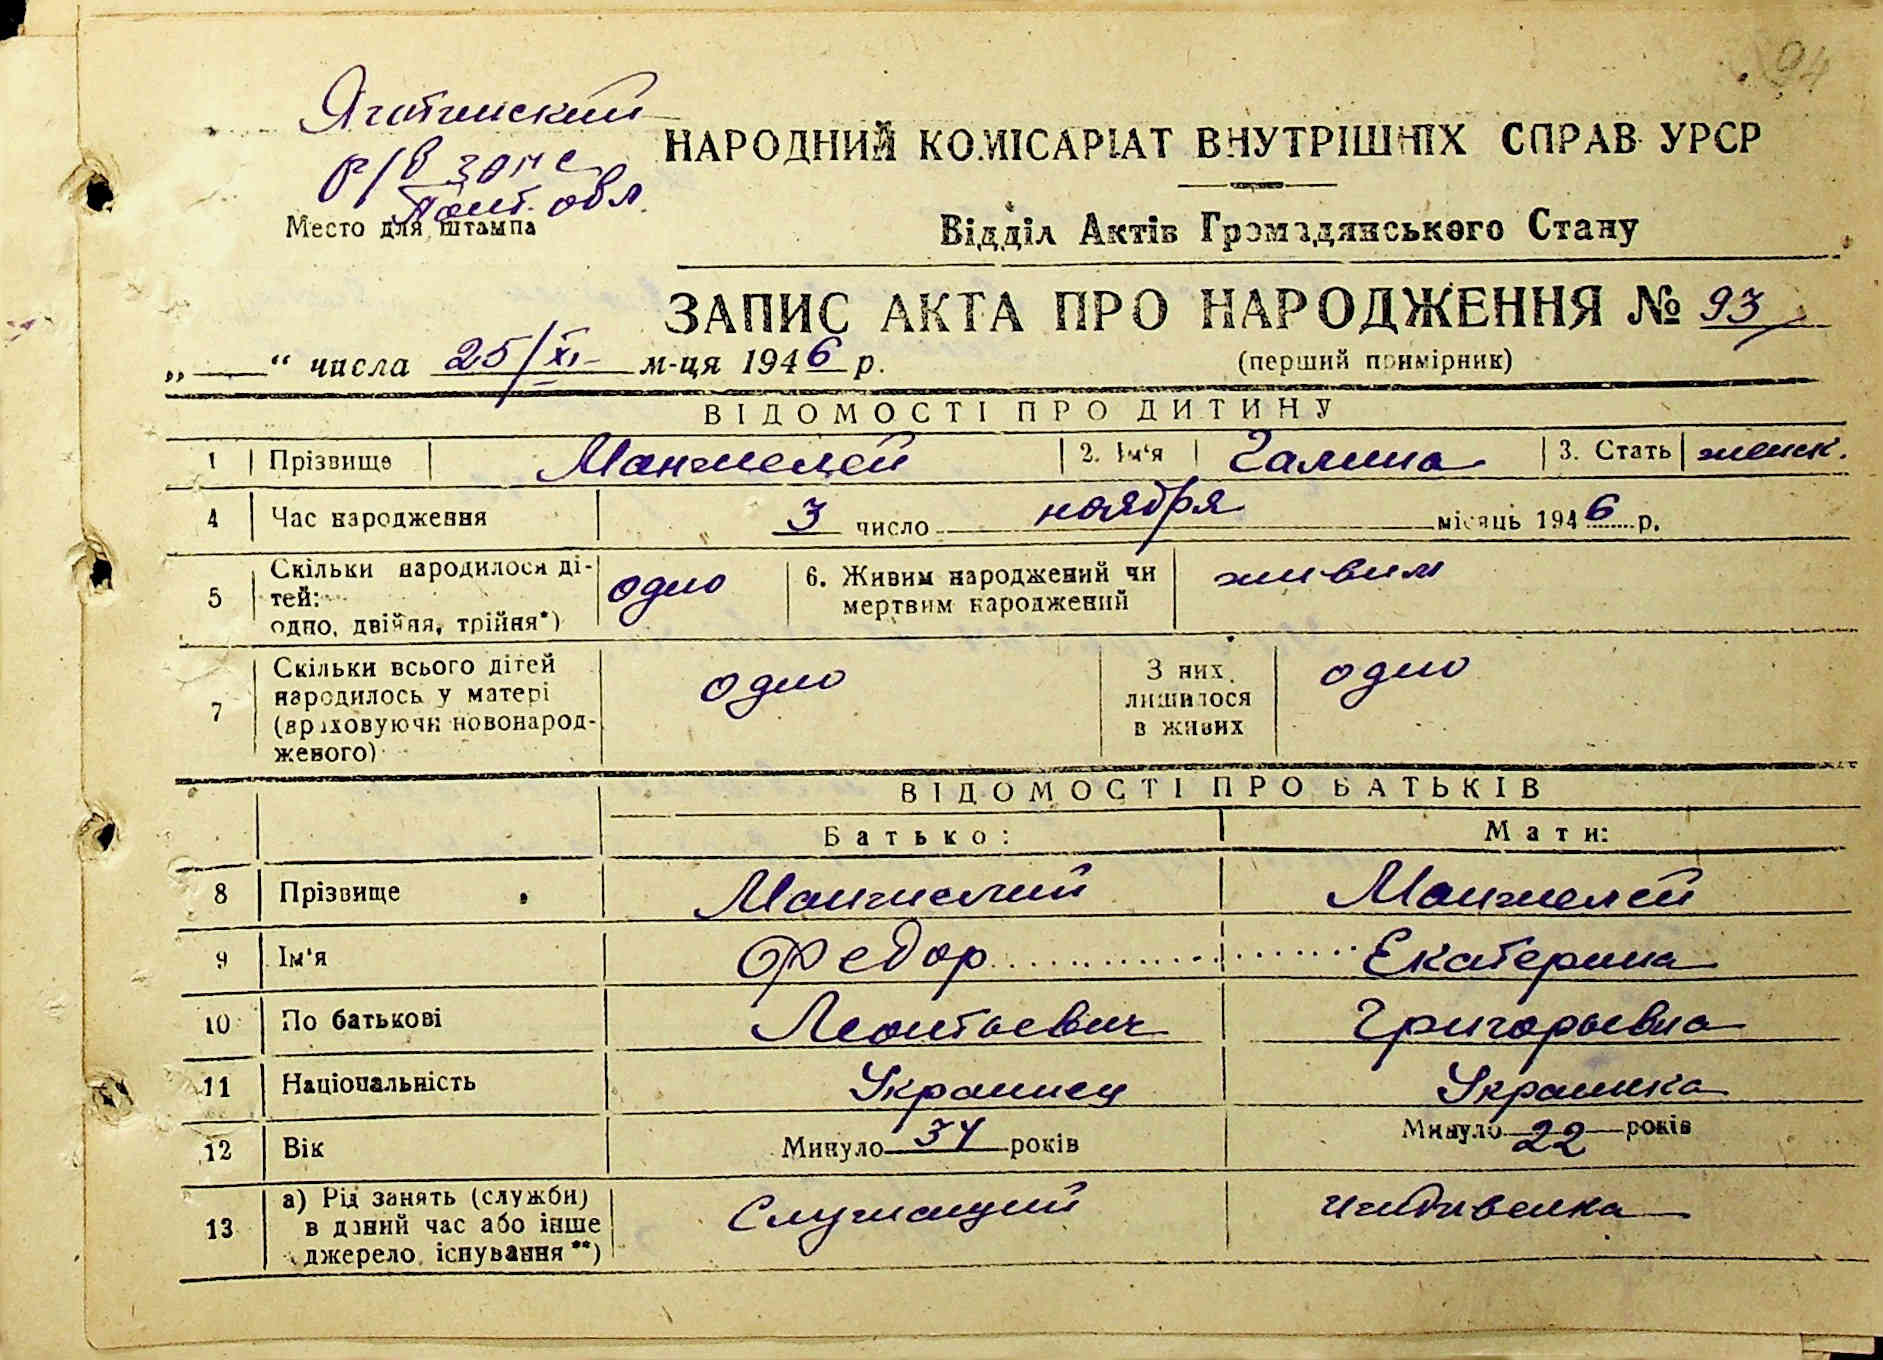 94
Яготинский
р/в загс
Полт. обл.
Место для штампа
НАРОДНИЙ КОМІСАРІАТ ВНУТРІШНІХ СПРАВ УРСР
Відділ Актів Громадянського Стану
ЗАПИС АКТА ПРО НАРОДЖЕННЯ № 93
„ — “ числа 25/XI м-ця 1946 р.
(перший примірник)
ВІДОМОСТІ ПРО ДИТИНУ
1 Прізвище Манжелей 2. Ім‘я Галина 3. Стать женск.
4 Час народження 3 число ноября місяць 1946 р.
5 Скільки народилося ді-
тей:
одно, двійня, трійня*) одно
6. Живим народжений чи
мертвим народжений живим
7 Скільки всього дітей
народилось у матері
(враховуючи новонарод-
жевого) одно
З них
лишилося
в живих одно
ВІДОМОСТІ ПРО БАТЬКІВ
Батько: Мати:
8 Прізвище Манжелий Манжелей
9 Ім‘я Федор Екатерина
10 По батькові Леонтьевич Григорьевна
11 Національність Украинец Украинка
12 Вік Минуло 34 років Минуло 22 років
13 а) Рід занять (служби)
в даний час або інше
джерело існування **) Служащий